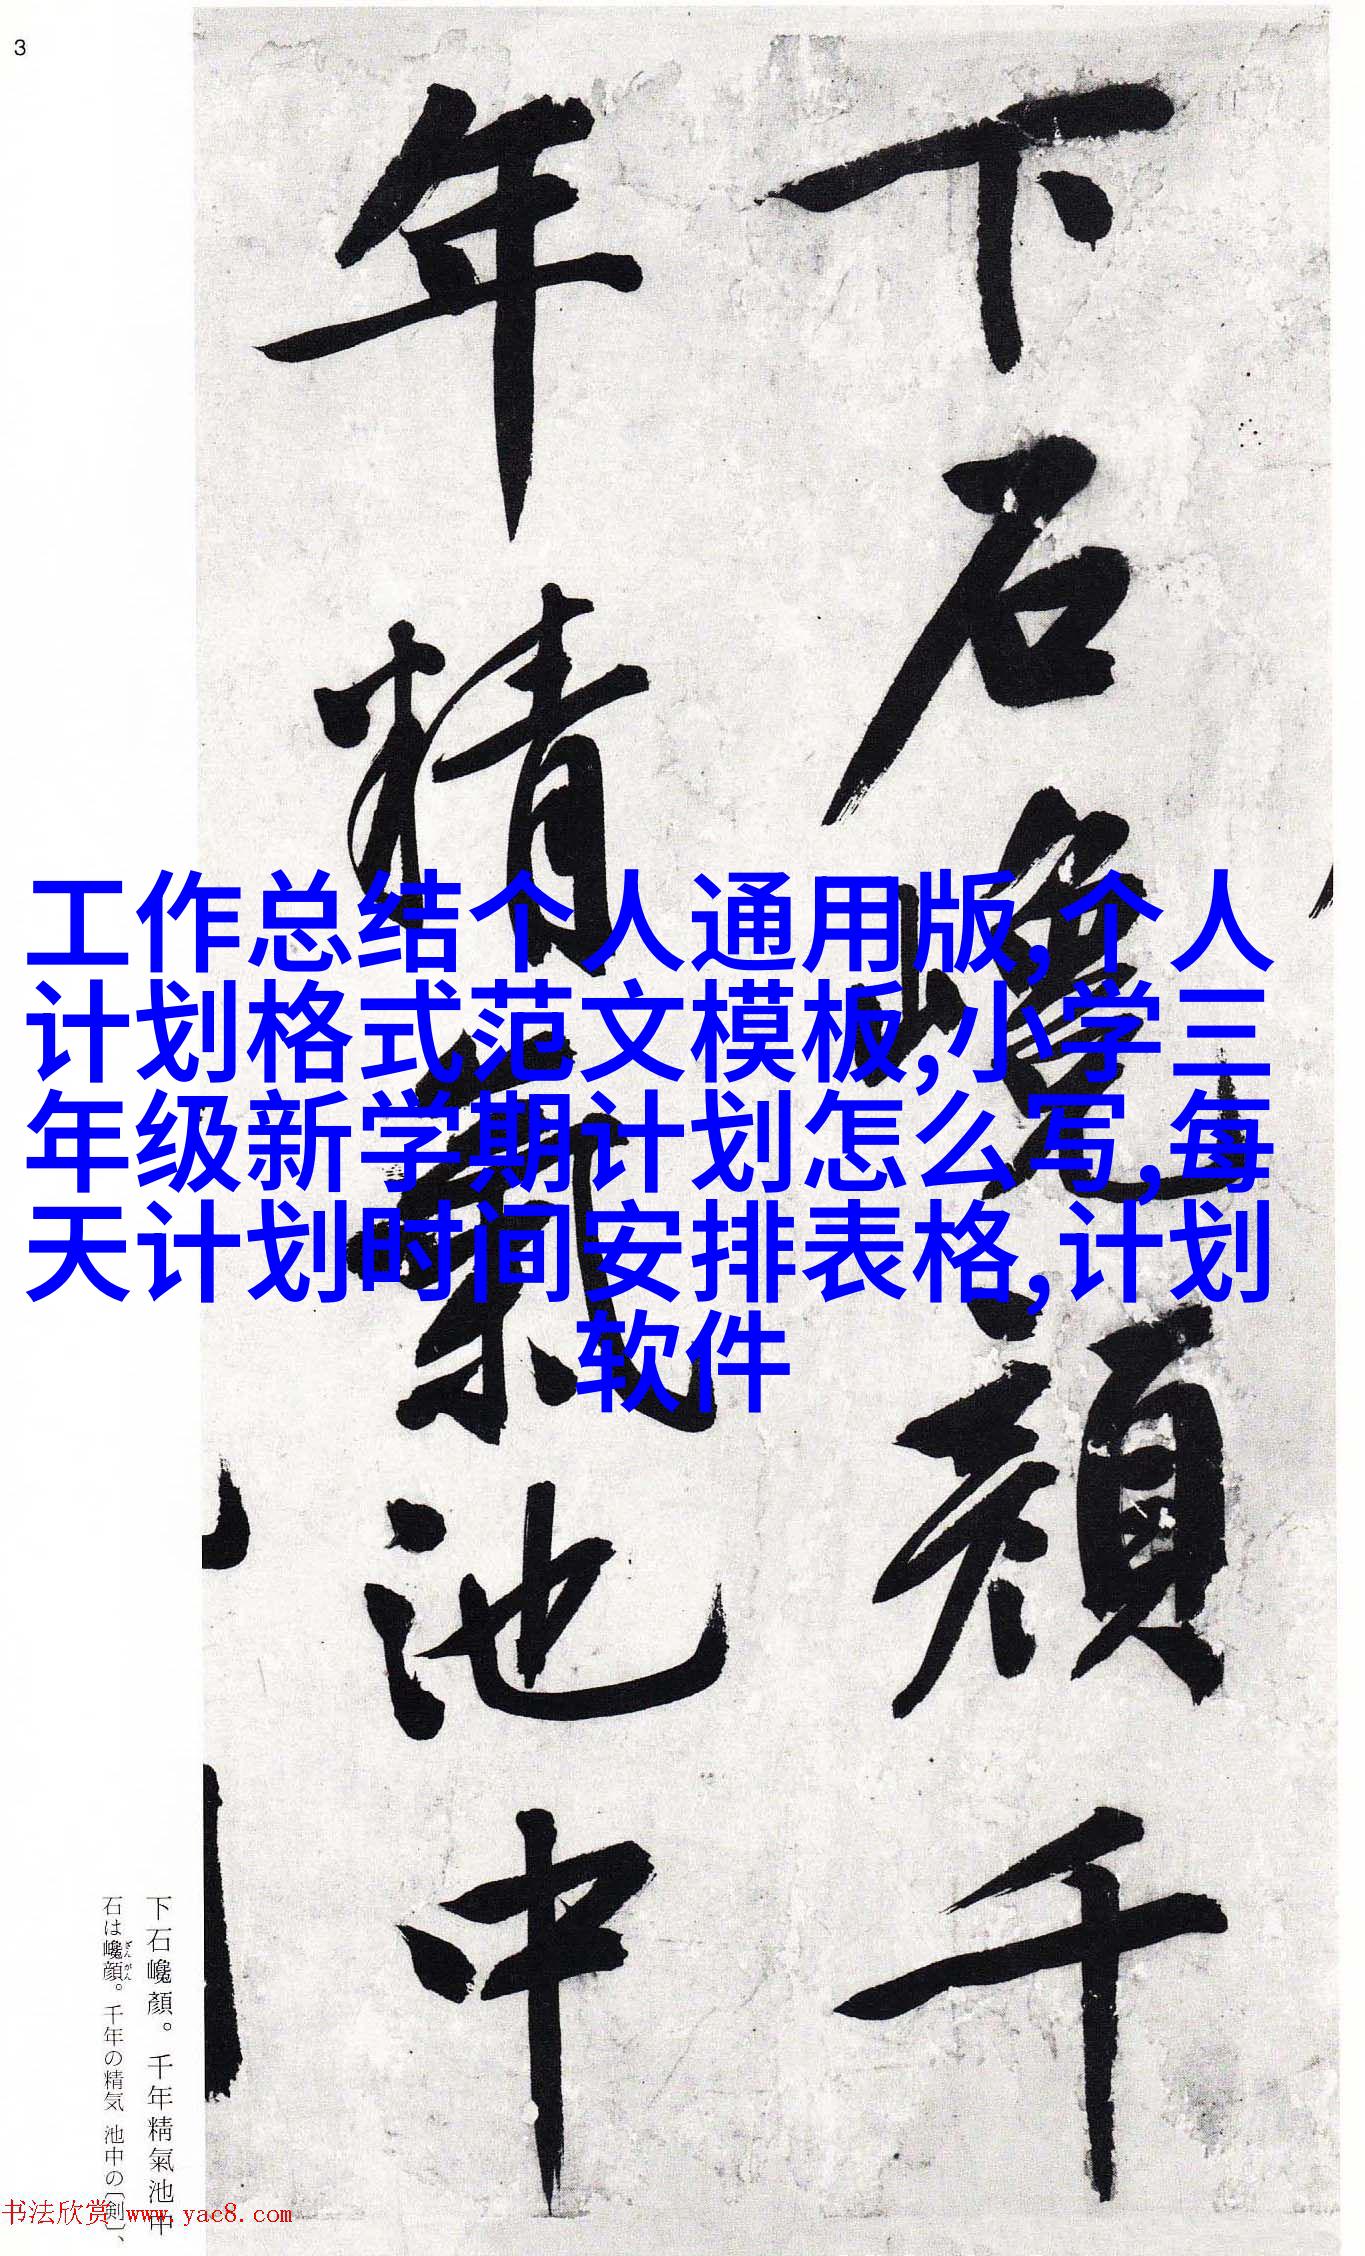 3
下石巉顔千
年精氣池中
工作总结个人通用版,个人
计划格式范文模板,小学三
年级新学期计划怎么写,每
天计划时间安排表格,计划
软件
下石巉顏。千年精氣池中
石は巉顔。千年の精気 池中の〔剣〕、
ざんがん
书法欣赏 www.yac8.com